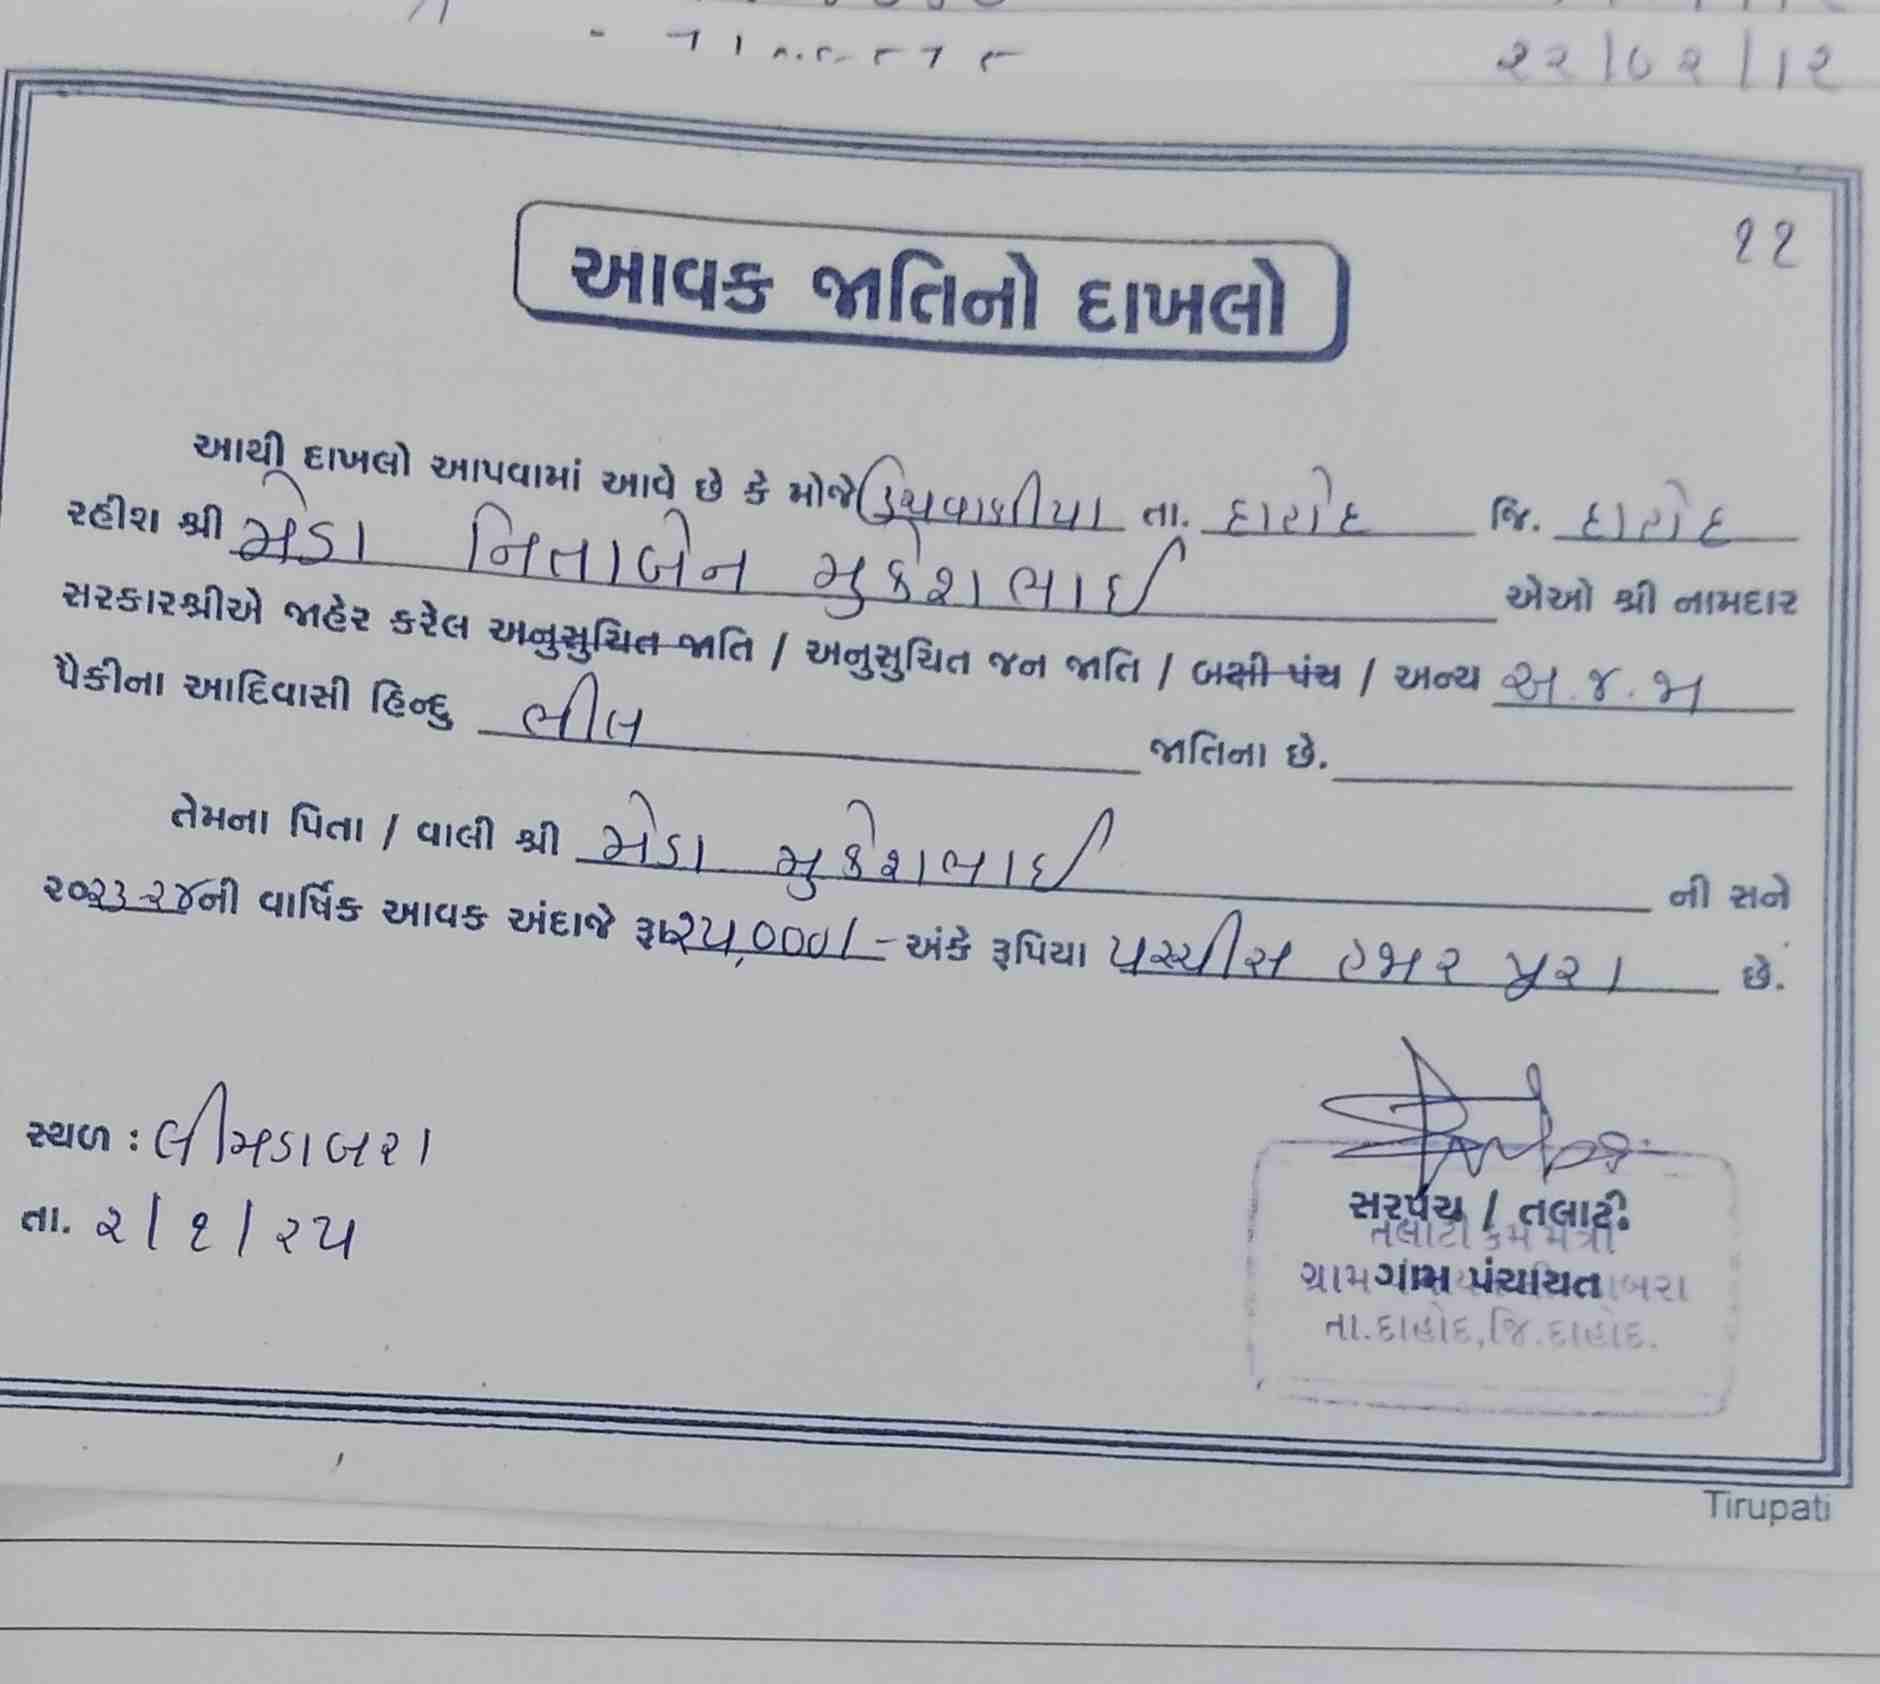 ૨૨/૦૨/૧૨
૧૧
આવક જાતિનો દાખલો
આથી દાખલો આપવામાં આવે છે કે મોજે ઉચવાણીયા તા. દાહોદ જિ. દાહોદ
રહીશ શ્રી મેડા નિતાબેન મુકેશભાઈ એઓ શ્રી નામદાર
સરકારશ્રીએ જાહેર કરેલ અનુસુચિત જાતિ / અનુસુચિત જન જાતિ / બક્ષી પંચ / અન્ય અ.જ.જા
પૈકીના આદિવાસી હિન્દુ ભીલ જાતિના છે.
તેમના પિતા / વાલી શ્રી મેડા મુકેશભાઈ ની સને
૨૦૨૩-૨૪ની વાર્ષિક આવક અંદાજે રૂા ૨૫,૦૦૦/- અંકે રૂપિયા પચ્ચીસ હજાર પુરા છે.
સ્થળ : લીમડાબરા
તા. ૨/૧/૨૫
સરપંચ / તલાટી
તલાટી કમ મંત્રી
ગ્રામ પંચાયત
તા.દાહોદ,જિ.દાહોદ.
Tirupati